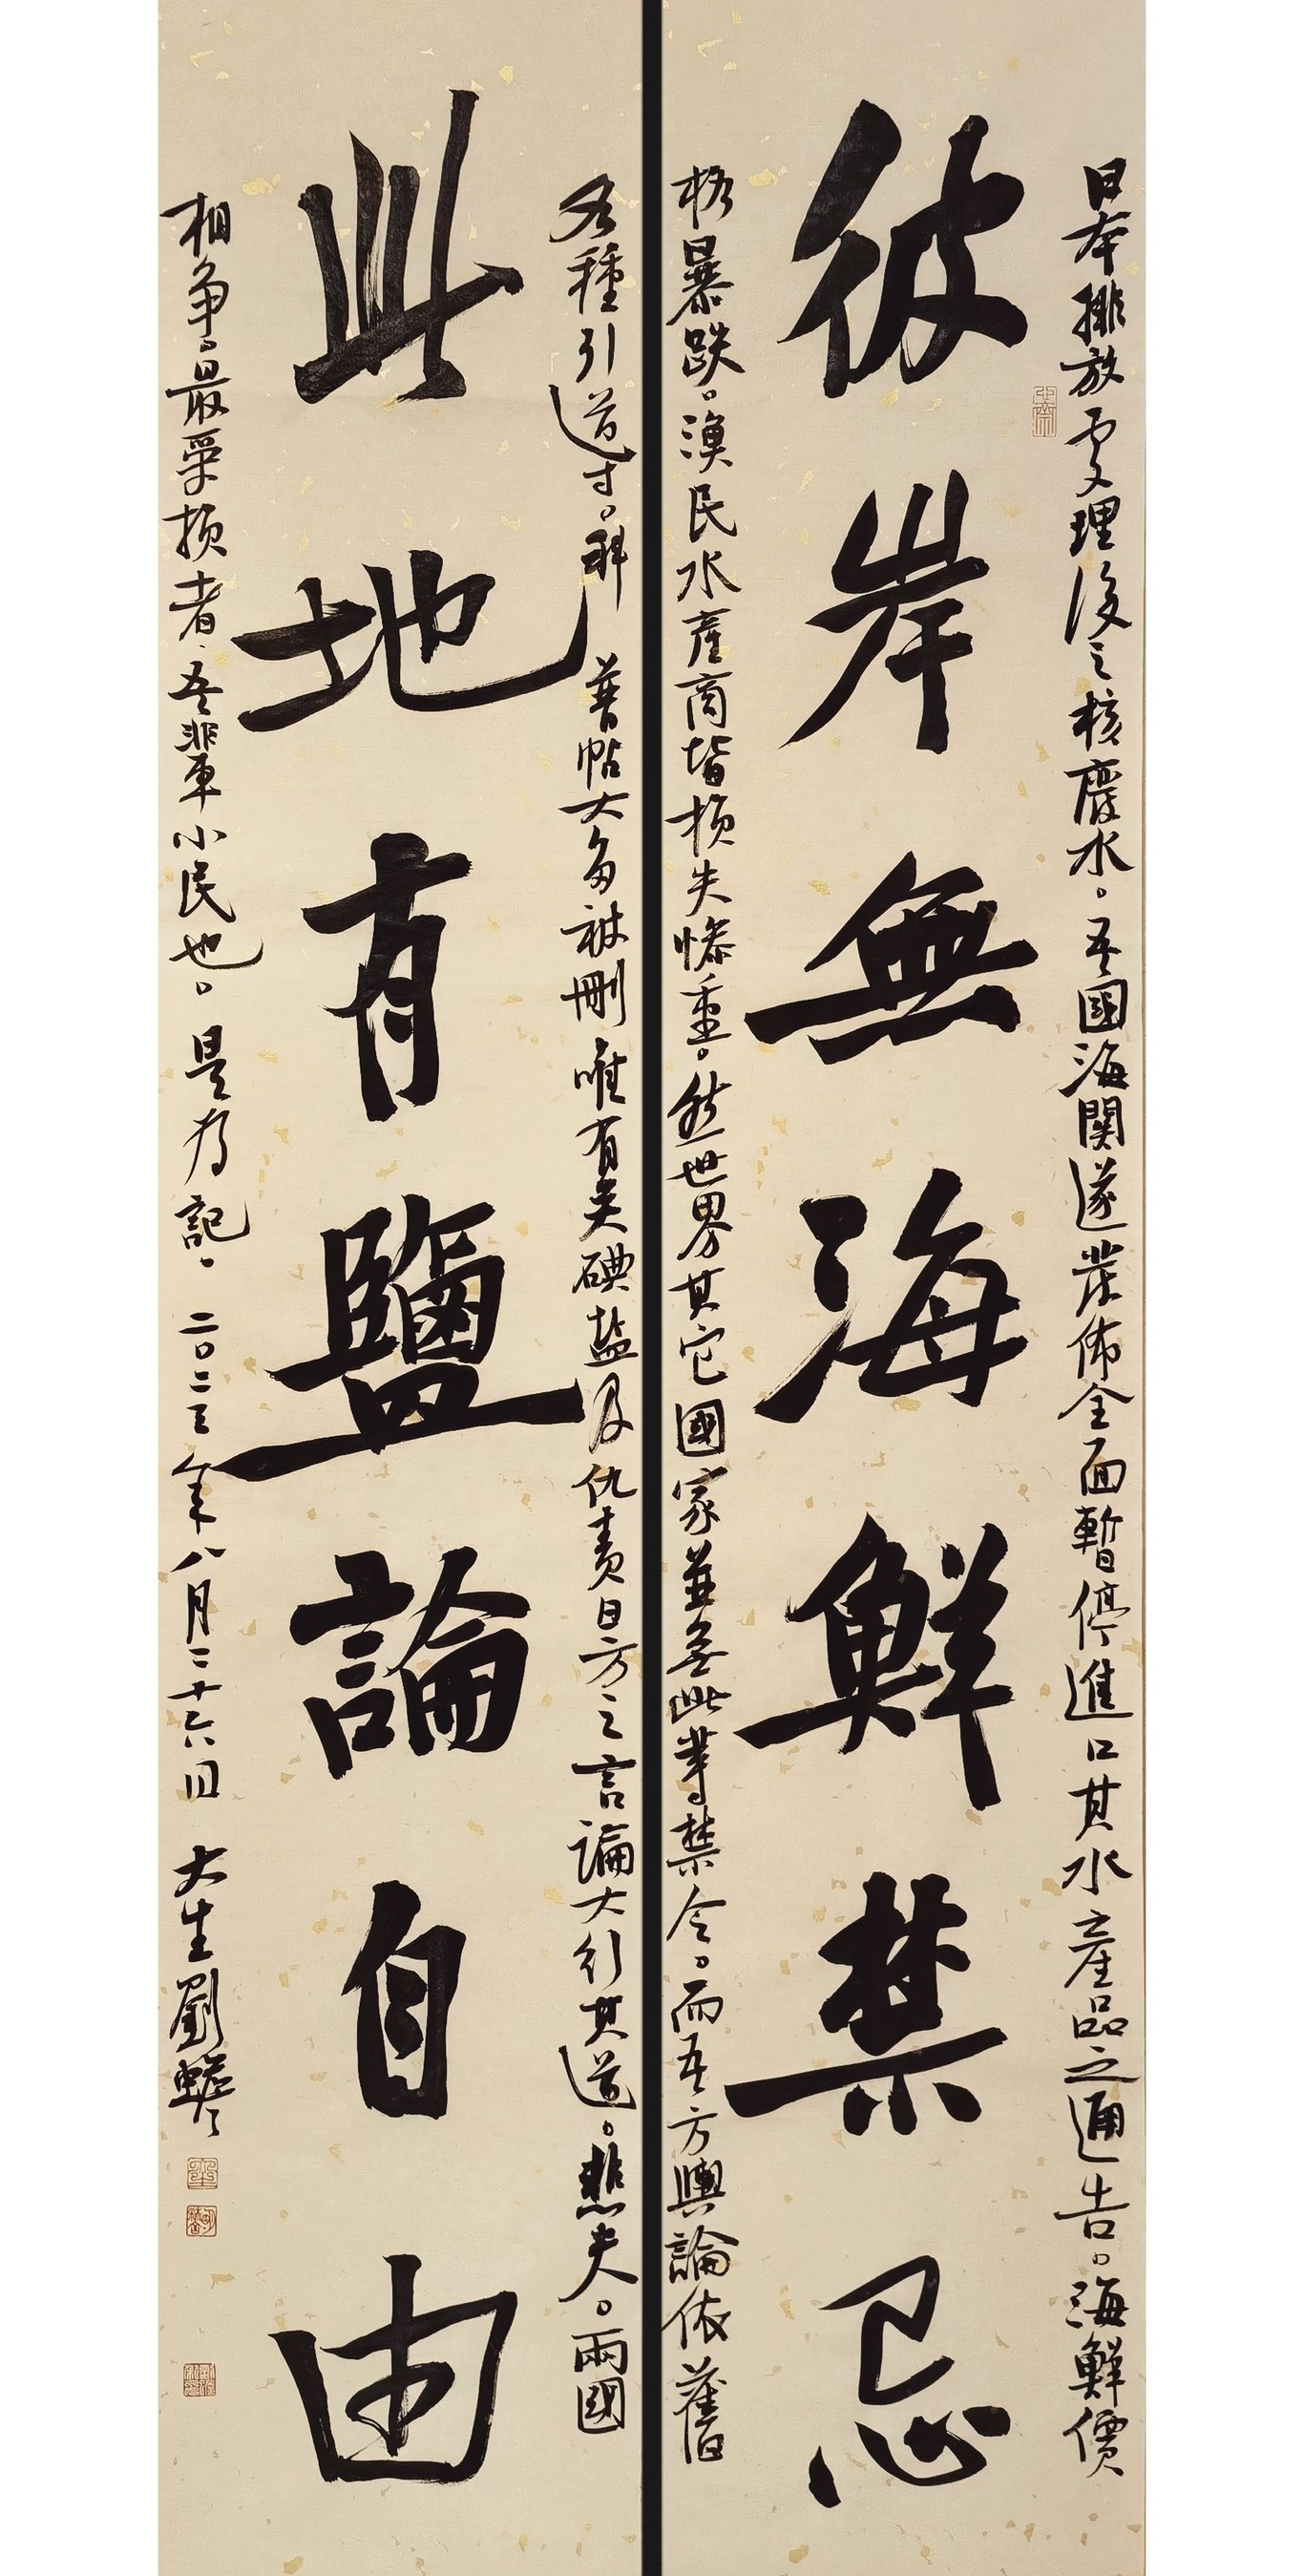 彼岸無海鮮禁忌
此地有鹽論自由
日本排放處理後之核廢水。吾國海關遂發佈全面暫停進口其水產品之通告。海鮮價
格暴跌。漁民水產商皆損失慘重。然世界其它國家並無此等禁令。而吾方輿論依舊
各種引導。科普帖大多被刪唯有关碘盐及仇责日方之言論大行其道。悲夫。兩國
相争。最受损者吾輩小民也。是为記。二〇二三年八月二十六日 大生劉蟾